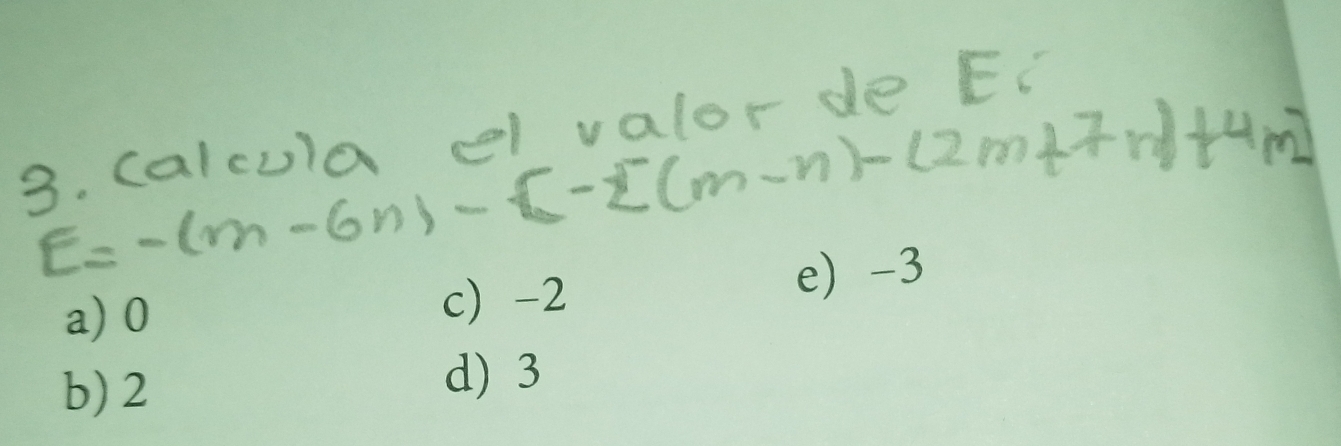 3. Calcula el valor de E:
E = -(m - 6n) - {-[(m - n) - (2m + 7n)] + 4m}
a) 0
c) -2
e) -3
b) 2
d) 3